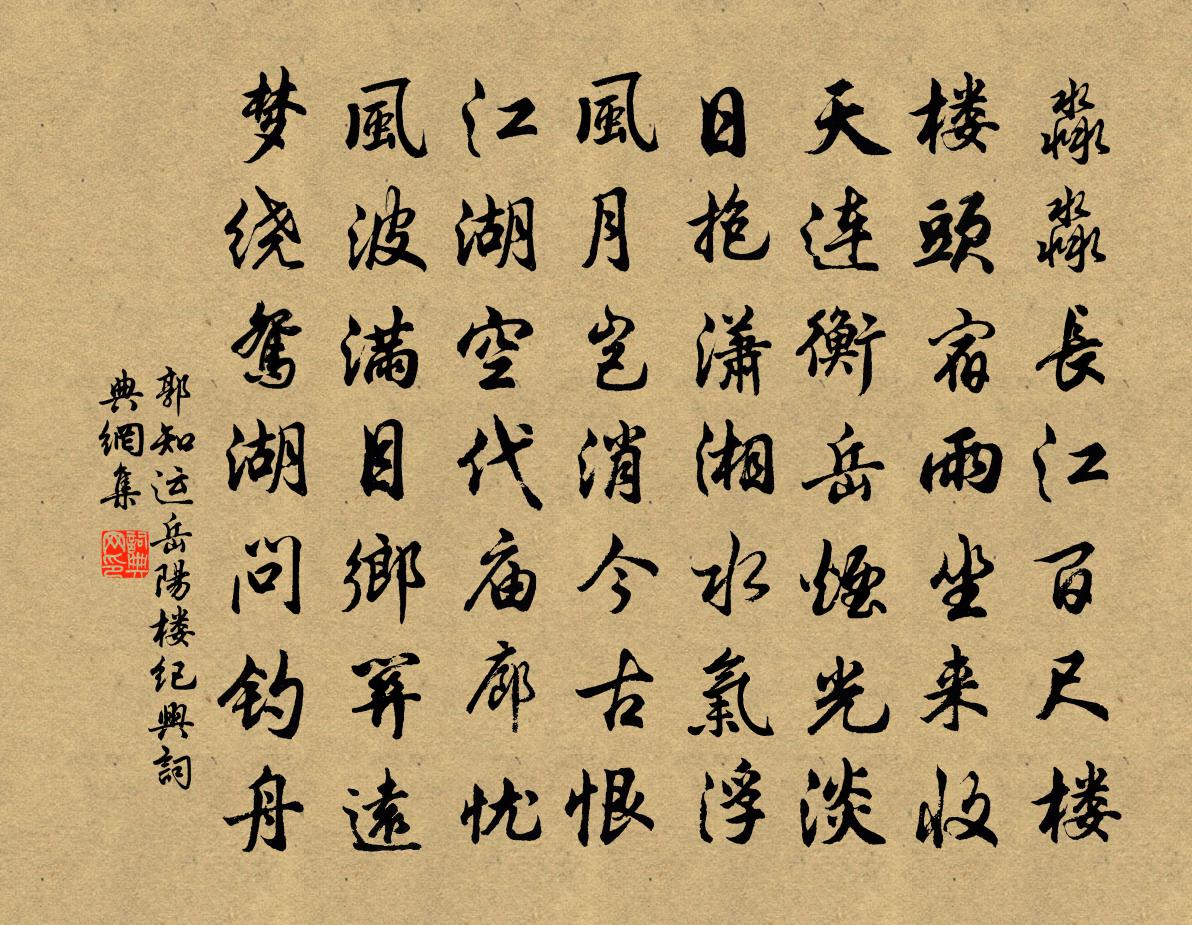 淼淼長江百尺楼
楼頭宿雨坐来收
天連衡岳煙光淡
日抱瀟湘水氣浮
風月岂消今古恨
江湖空代庙廊忧
風波满目鄉关遠
梦绕鴛湖问釣舟
郭知运岳陽楼纪興詞
典網集
詞典
网印